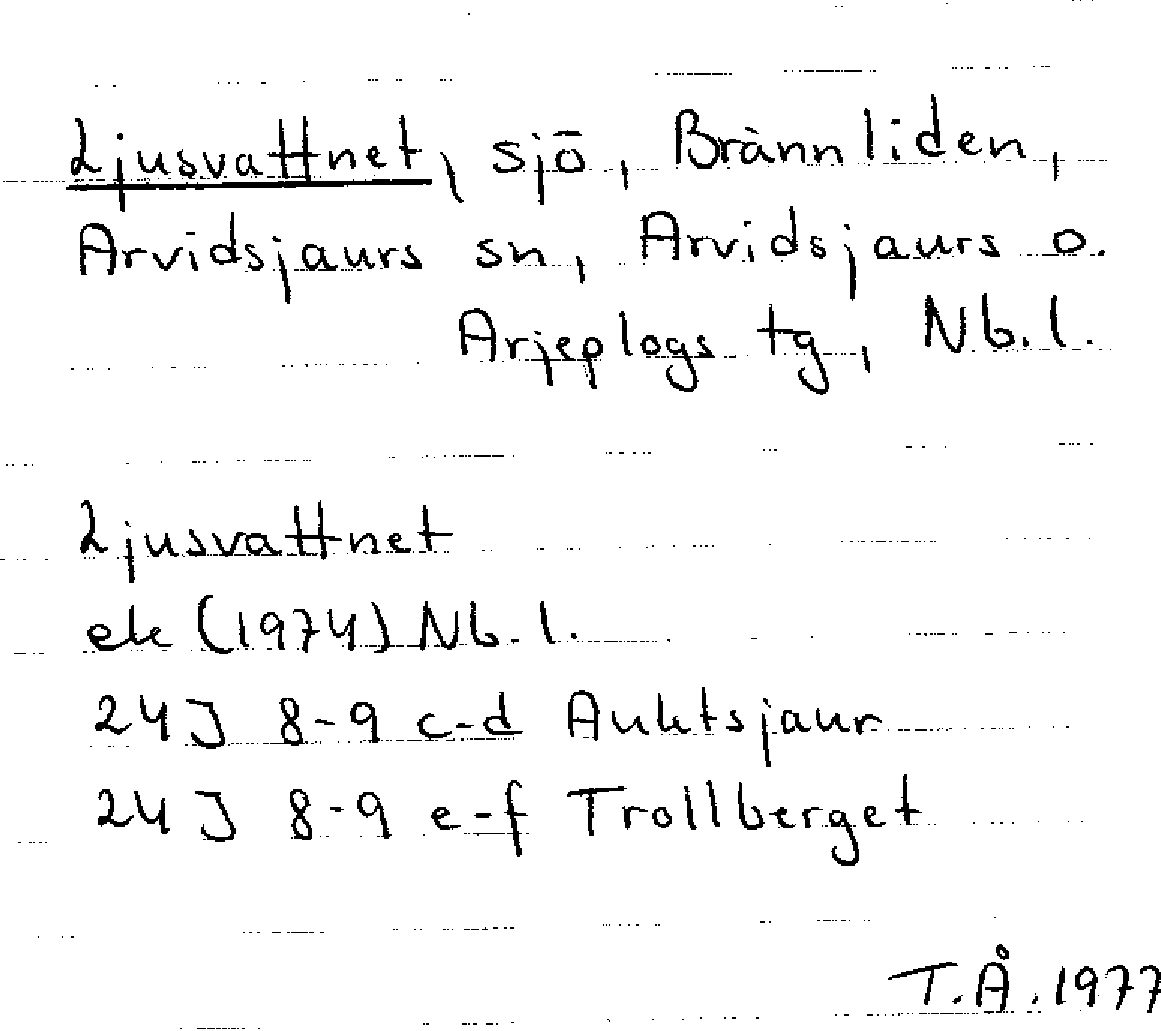 Ljusvattnet, sjö, Brännliden,
Arvidsjaurs sn, Arvidsjaurs o.
Arjeplogs tg, Nb.l.
Ljusvattnet
ek (1974) Nb.l.
24J 8-9 c-d Auktsjaur
24J 8-9 e-f Trollberget
T.Å. 1977